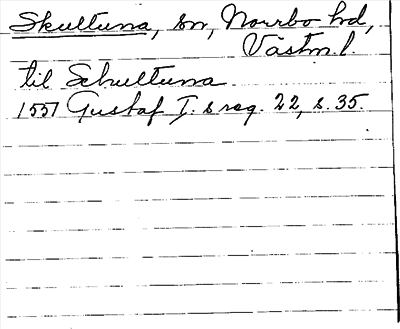 Skultuna, sn, Norrbo hd,
Västm l.
til Schultuna
1551 Gustaf I:s reg. 22, s. 35.